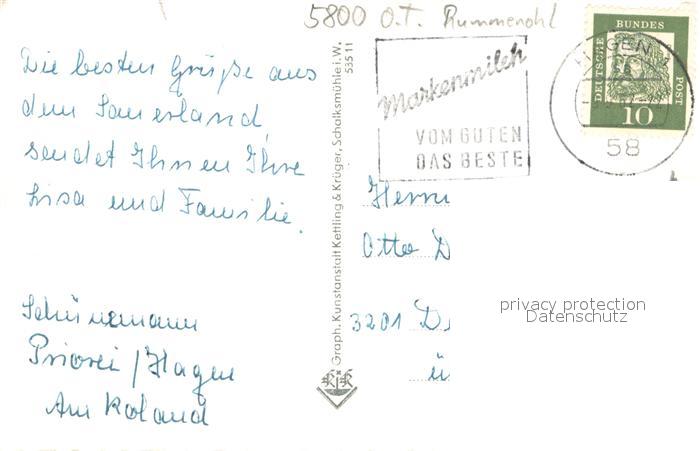 5800 O.T. Rummenohl
Die besten Grüße aus
dem Sauerland,
sendet Ihnen Ihre
Lisa und Familie.
Schünemann
Priorei / Hagen
Am Roland
Graph. Kunstanstalt Kettling & Krüger, Schalksmühle i. W.
535 11
KK
Markenmilch
VOM GUTEN
DAS BESTE
HAGEN 1
58
DEUTSCHE
BUNDES
POST
10
Herrn
Otto D
3201 D
ü
privacy protection
Datenschutz